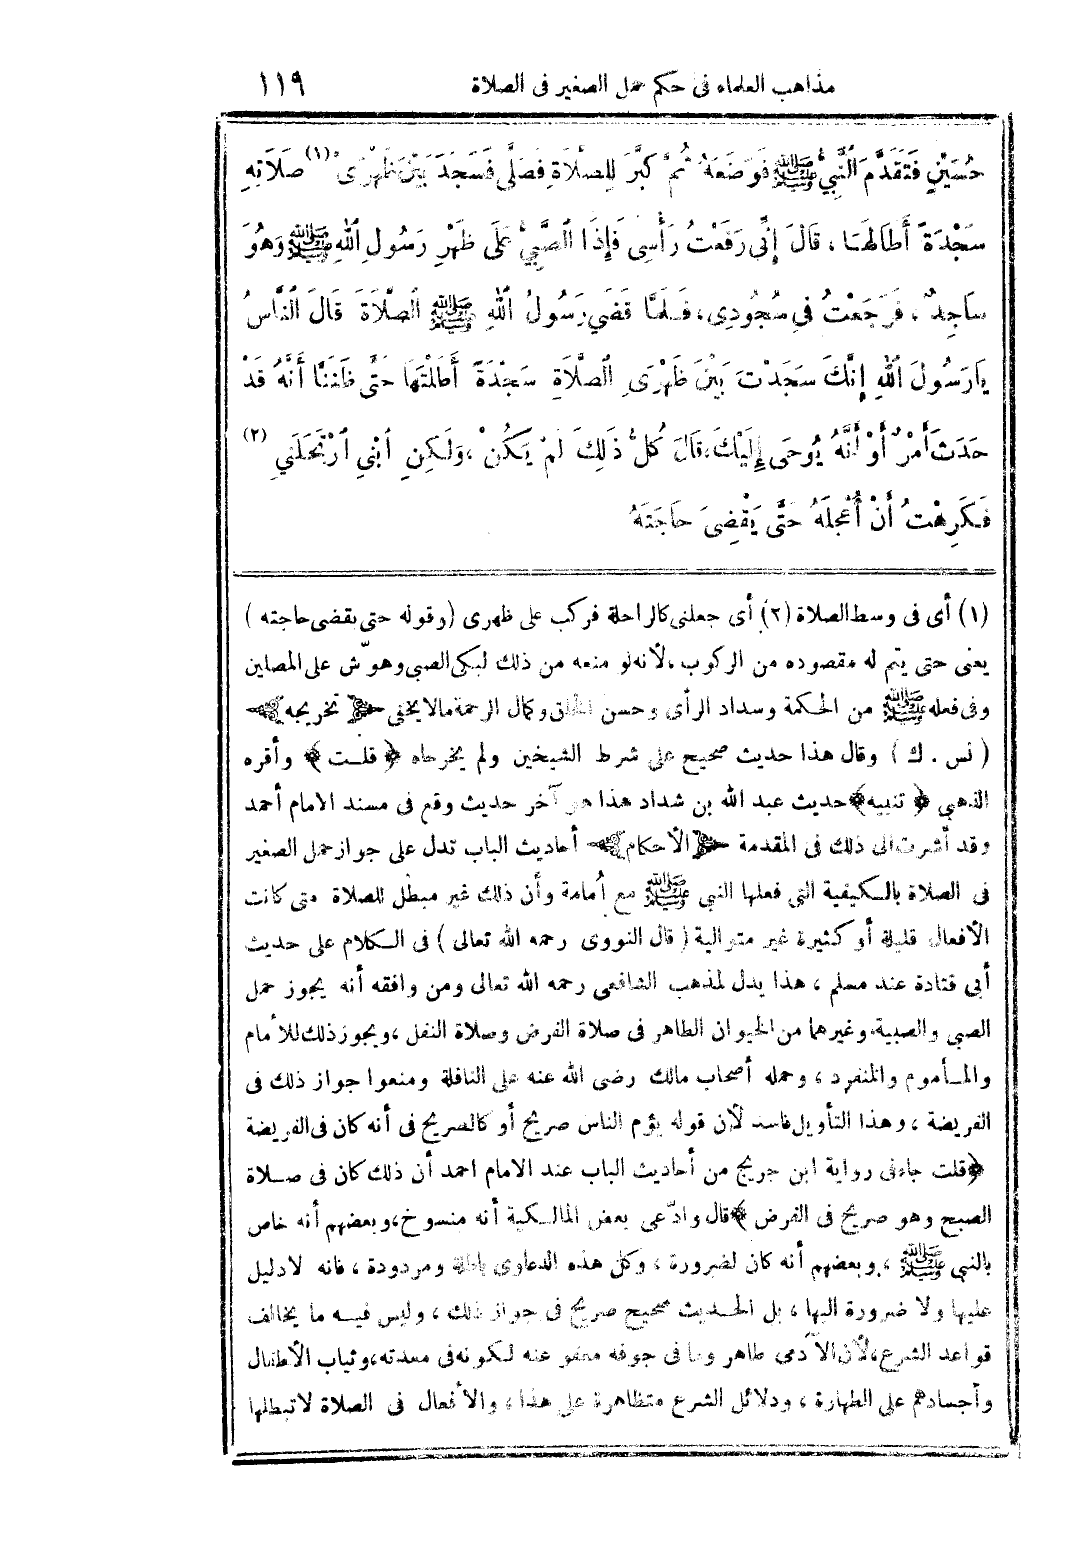 مذاهب العلماء فى حكم حمل الصغير فى الصلاة ١١٩
حُسَيْنٍ فَتَقَدَّمَ النَّبِيُّ ﷺ فَوَضَعَهُ ثُمَّ كَبَّرَ لِلصَّلَاةِ فَصَلَّى فَسَجَدَ بَيْنَ ظَهْرَىْ (١) صَلَاتِهِ
سَجْدَةً أَطَالَهَا ، قَالَ إِنِّى رَفَعْتُ رَأْسِى فَإِذَا الصَّبِىُّ عَلَى ظَهْرِ رَسُولِ اللهِ ﷺ وَهُوَ
سَاجِدٌ ، فَرَجَعْتُ فِى سُجُودِى ، فَلَمَّا قَضَى رَسُولُ اللهِ ﷺ الصَّلَاةَ قَالَ النَّاسُ
يَارَسُولَ اللهِ إِنَّكَ سَجَدْتَ بَيْنَ ظَهْرَىِ الصَّلَاةِ سَجْدَةً أَطَلْتَهَا حَتَّى ظَنَنَّا أَنَّهُ قَدْ
حَدَثَ أَمْرٌ أَوْ أَنَّهُ يُوحَى إِلَيْكَ، قَالَ كُلُّ ذَلِكَ لَمْ يَكُنْ ، وَلَكِنِ ابْنِي ارْتَحَلَنِي (٢)
فَكَرِهْتُ أَنْ أُعْجِلَهُ حَتَّى يَقْضِىَ حَاجَتَهُ
(١) أى فى وسط الصلاة (٢) أى جعلنى كالراحلة فركب على ظهرى (وقوله حتى يقضى حاجته )
يعنى حتى يتم له مقصوده من الركوب ، لأنه لو منعه من ذلك لبكى الصبى وهوّش على المصلين
وفى فعله ﷺ من الحكمة وسداد الرأى وحسن الخلق وكمال الرحمة مالا يخفى ﴿ تخريجه ﴾
( نس . ك ) وقال هذا حديث صحيح على شرط الشيخين ولم يخرجاه ﴿ قلت ﴾ وأقره
الذهبى ﴿ تنبيه ﴾ حديث عبد الله بن شداد هذا هو آخر حديث وقع فى مسند الامام أحمد
وقد أشرت الى ذلك فى المقدمة ﴿ الأحكام ﴾ أحاديث الباب تدل على جواز حمل الصغير
فى الصلاة بالكيفية التى فعلها النبى ﷺ مع أمامة وأن ذلك غير مبطل للصلاة متى كانت
الأفعال قليلة أو كثيرة غير متوالية ( قال النووى رحمه الله تعالى ) فى الكلام على حديث
أبى قتادة عند مسلم ، هذا يدل لمذهب الشافعى رحمه الله تعالى ومن وافقه أنه يجوز حمل
الصبى والصبية وغيرهما من الحيوان الطاهر فى صلاة الفرض وصلاة النفل ، ويجوز ذلك للأمام
والمأموم والمنفرد ، وحمله أصحاب مالك رضى الله عنه على النافلة ومنعوا جواز ذلك فى
الفريضة ، وهذا التأويل فاسد لأن قوله يؤم الناس صريح أو كالصريح فى أنه كان فى الفريضة
﴿ قلت جاء فى رواية ابن جريج من أحاديث الباب عند الامام احمد أن ذلك كان فى صلاة
الصبح وهو صريح فى الفرض ﴾ قال وادّعى بعض المالكية أنه منسوخ، وبعضهم أنه خاص
بالنبى ﷺ ، وبعضهم أنه كان لضرورة ، وكل هذه الدعاوى باطلة ومردودة ، فانه لا دليل
عليها ولا ضرورة اليها ، بل الحديث صحيح صريح فى جواز ذلك ، وليس فيه ما يخالف
قواعد الشرع ، لأن الآدمى طاهر وما فى جوفه معفو عنه لكونه فى معدته ، وثياب الأطفال
وأجسادهم على الطهارة ، ودلائل الشرع متظاهرة على هذا ، والأفعال فى الصلاة لا تبطلها